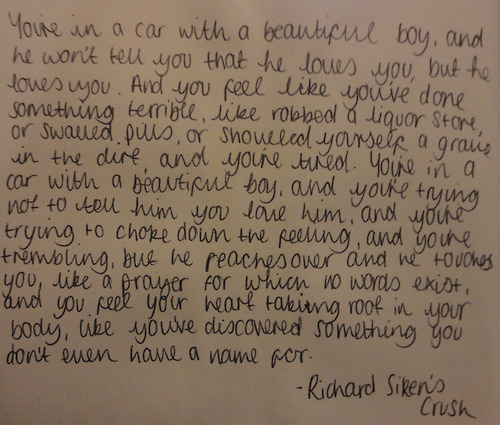 You're in a car with a beautiful boy, and
he won't tell you that he loves you, but he
loves you. And you feel like you've done
something terrible, like robbed a liquor store,
or swalled pills, or shoveled yourself a grave
in the dirt, and you're tired. You're in a
car with a beautiful boy, and you're trying
not to tell him you love him, and you're
trying to choke down the feeling, and you're
trembling, but he reaches over and he touches
you, like a prayer for which no words exist,
and you feel your heart taking root in your
body, like you've discovered something you
don't even have a name for.
- Richard Siken's
Crush